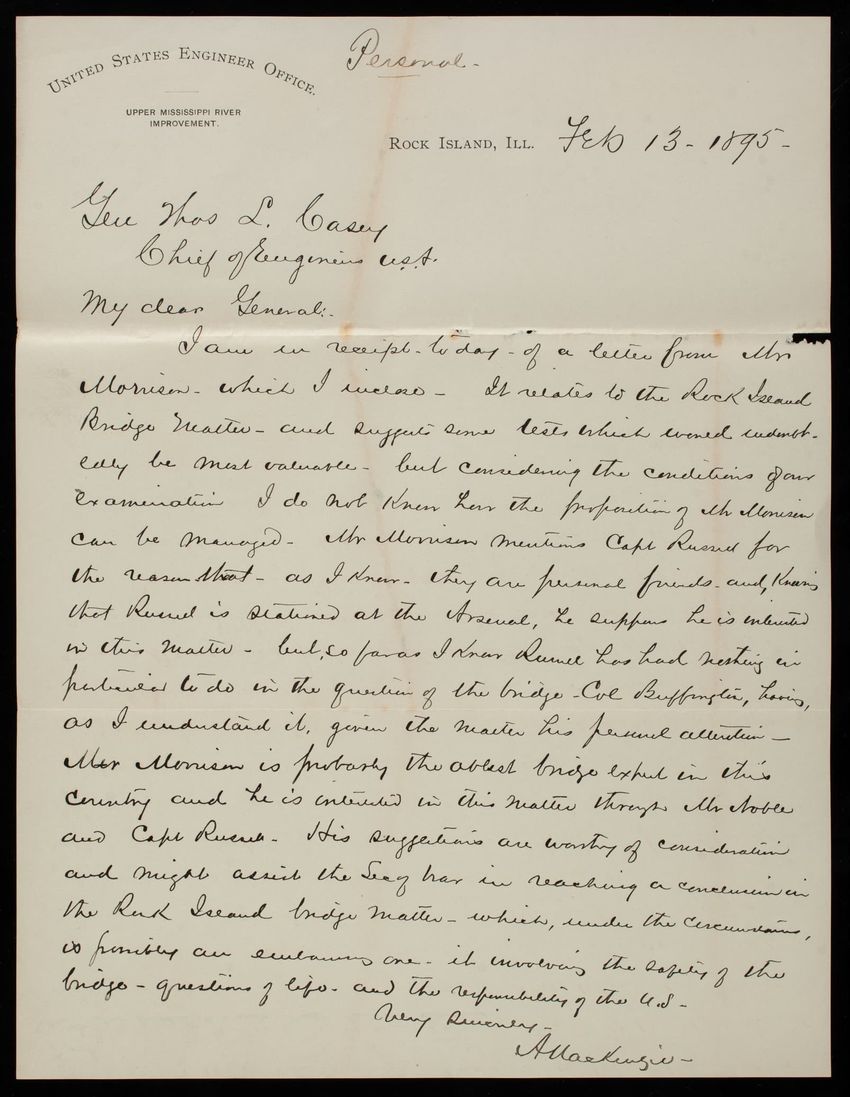 UNITED STATES ENGINEER OFFICE.
Personal -
UPPER MISSISSIPPI RIVER
IMPROVEMENT.
ROCK ISLAND, ILL. Feb 13 - 1895 -
Gen Thos L. Casey
Chief of Engineers U.S.A.
My dear General:-
I am in receipt - to day - of a letter from Mr
Morrison - which I inclose - It relates to the Rock Island
Bridge Matter - and suggests some tests which would undoubt-
edly be most valuable - but considering the conditions of our
examination I do not know how the proposition of Mr Morrison
can be managed - Mr Morrison mentions Capt Russel for
the reason that - as I know - they are personal friends - and, knowing
that Russel is stationed at the Arsenal, he supposes he is interested
in this matter - but, so far as I know Russel has had nothing in
particular to do in the question of the bridge - Col Buffington, having,
as I understand it, given the matter his personal attention -
Mr Morrison is probably the ablest bridge expert in this
country and he is interested in this matter through Mr Noble
and Capt Russel - His suggestions are worthy of consideration
and might assist the Sec of War in reaching a conclusion in
the Rock Island bridge matter - which, under the circumstances,
is possibly an embarrassing one - it involving the safety of the
bridge - questions of life - and the responsibility of the U.S -
Very Sincerely -
A Mackenzie -